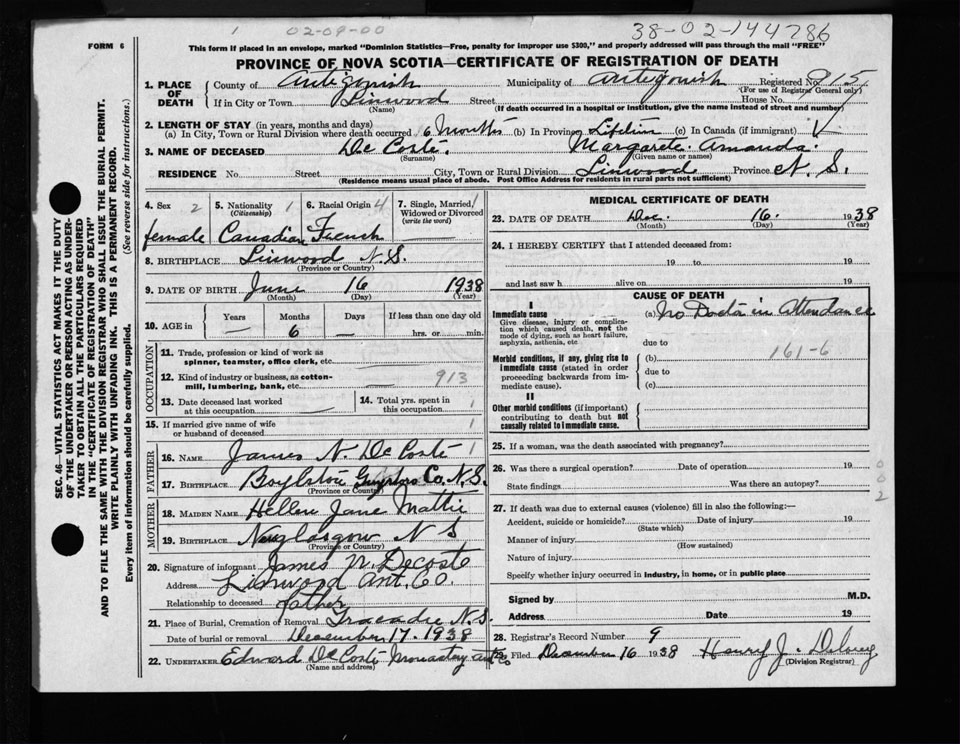 1 02-09-00 38-02-144786
FORM 6
This form if placed in an envelope, marked "Dominion Statistics—Free, penalty for improper use $300," and properly addressed will pass through the mail "FREE"
PROVINCE OF NOVA SCOTIA—CERTIFICATE OF REGISTRATION OF DEATH
1. PLACE OF DEATH
County of Antigonish Municipality of Antigonish Registered No. 915
(For use of Registrar General only)
If in City or Town Linwood Street House No.
(Name) (If death occurred in a hospital or institution, give the name instead of street and number)
2. LENGTH OF STAY (in years, months and days)
(a) In City, Town or Rural Division where death occurred 6 Months (b) In Province Lifetim (c) In Canada (if immigrant)
3. NAME OF DECEASED De Coste. Margaret. Amanda.
(Surname) (Given name or names)
RESIDENCE No. Street City, Town or Rural Division Linwood Province N. S.
(Residence means usual place of abode. Post Office Address for residents in rural parts not sufficient)
SEC. 46—VITAL STATISTICS ACT MAKES IT THE DUTY
OF THE UNDERTAKER OR PERSON ACTING AS UNDER-
TAKER TO OBTAIN ALL THE PARTICULARS REQUIRED
IN THE "CERTIFICATE OF REGISTRATION OF DEATH"
AND TO FILE THE SAME WITH THE DIVISION REGISTRAR WHO SHALL ISSUE THE BURIAL PERMIT.
WRITE PLAINLY WITH UNFADING INK. THIS IS A PERMANENT RECORD.
Every item of information should be carefully supplied. (See reverse side for instructions.)
4. Sex 2 female
5. Nationality 1 (Citizenship) Canadian
6. Racial Origin 4 French
7. Single, Married, Widowed or Divorced (write the word) 1
8. BIRTHPLACE Linwood N. S.
(Province or Country)
9. DATE OF BIRTH June 16 1938
(Month) (Day) (Year)
10. AGE in Years — Months 6 Days — If less than one day old hrs. or min.
OCCUPATION
11. Trade, profession or kind of work as spinner, teamster, office clerk, etc.
12. Kind of industry or business, as cotton-mill, lumbering, bank, etc. 913
13. Date deceased last worked at this occupation
14. Total yrs. spent in this occupation 1
15. If married give name of wife or husband of deceased 1
FATHER
16. NAME James N. De Coste 1
17. BIRTHPLACE Boylston Guysboro Co. N. S.
(Province or Country)
MOTHER
18. MAIDEN NAME Hellen Jane Mattie
19. BIRTHPLACE New glasgow N S
(Province or Country)
20. Signature of informant James N. Decoste
Address Linwood Ant. Co.
Relationship to deceased father
21. Place of Burial, Cremation of Removal Tracadie N. S.
Date of burial or removal December 17. 1938
22. UNDERTAKER Edward De Coste Monastery Ant Co
(Name and address)
MEDICAL CERTIFICATE OF DEATH
23. DATE OF DEATH Dec. 16. 1938
(Month) (Day) (Year)
24. I HEREBY CERTIFY that I attended deceased from:
19 to 19
and last saw h alive on 19
CAUSE OF DEATH
I
Immediate cause
Give disease, injury or complication which caused death, not the mode of dying, such as heart failure, asphyxia, asthenia, etc
(a) No Doctor in Attendance
due to
Morbid conditions, if any, giving rise to immediate cause (stated in order proceeding backwards from immediate cause).
(b) 161-6
due to
(c)
II
Other morbid conditions (if important) contributing to death but not causally related to immediate cause.
25. If a woman, was the death associated with pregnancy?
26. Was there a surgical operation? Date of operation 19
State findings Was there an autopsy?
002
27. If death was due to external causes (violence) fill in also the following:—
Accident, suicide or homicide? Date of injury 19
(State which)
Manner of injury
(How sustained)
Nature of injury
Specify whether injury occurred in industry, in home, or in public place
Signed by M.D.
Address Date 19
28. Registrar's Record Number 9
29. Filed December 16 1938 Henry J. Delorey
(Division Registrar)